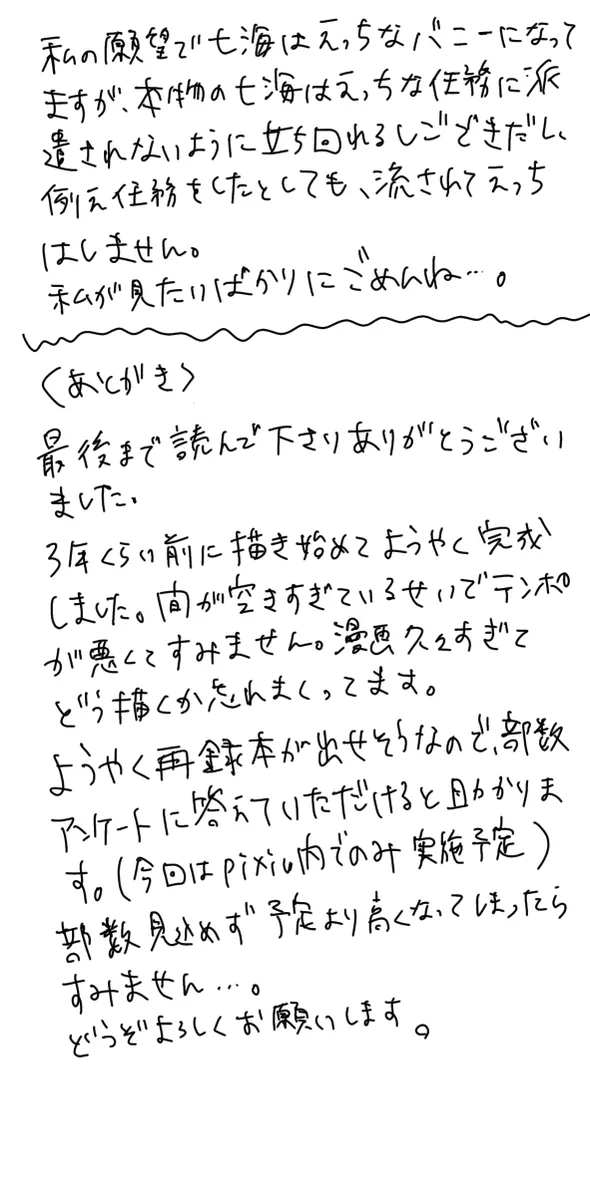 私の願望で七海はえっちなバニーになって
ますが、本物の七海はえっちな任務に派
遣されないように立ち回れるしごできだし、
例え任務をしたとしても、流されてえっち
はしません。
私が見たいばかりにごめんね…。
〈あとがき〉
最後まで読んで下さりありがとうござい
ました。
3年くらい前に描き始めてようやく完成
しました。間が空きすぎているせいでテンポ
が悪くてすみません。漫画久々すぎて
どう描くか忘れまくってます。
ようやく再録本が出せそうなので、部数
アンケートに答えていただけると助かりま
す。(今回はpixiv内でのみ実施予定)
部数見込めず予定より高くなってしまったら
すみません…。
どうぞよろしくお願いします。